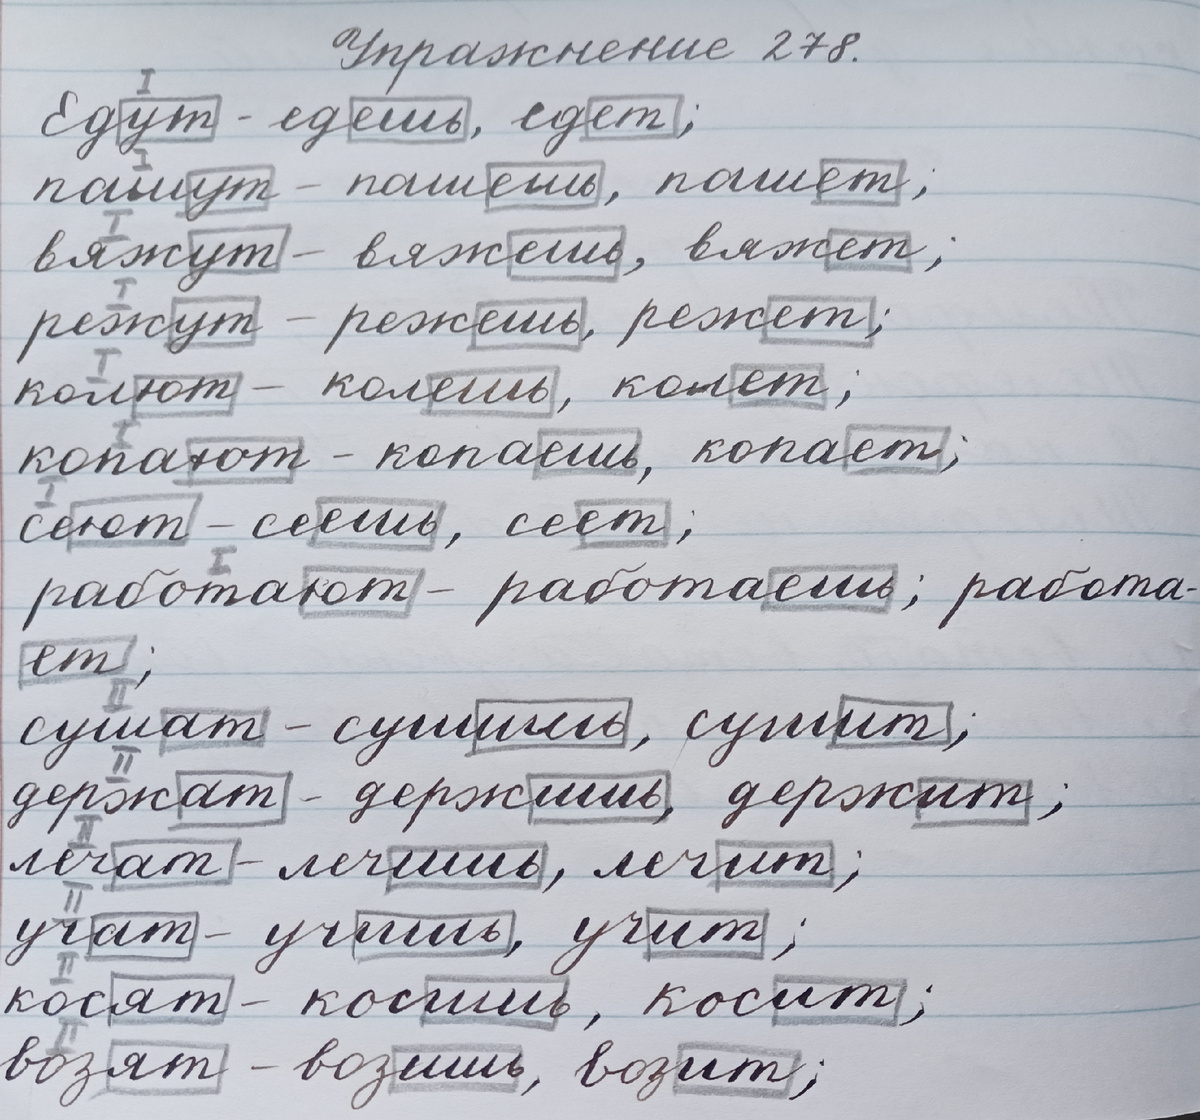 Упражнение 278.
I
Едут - едешь, едет;
I
пашут - пашешь, пашет;
I
вяжут - вяжешь, вяжет;
I
режут - режешь, режет;
I
колют - колешь, колет;
I
копают - копаешь, копает;
I
сеют - сеешь, сеет;
I
работают - работаешь; работа-
ет;
II
сушат - сушишь, сушит;
II
держат - держишь, держит;
II
лечат - лечишь, лечит;
II
учат - учишь, учит;
II
косят - косишь, косит;
II
возят - возишь, возит;